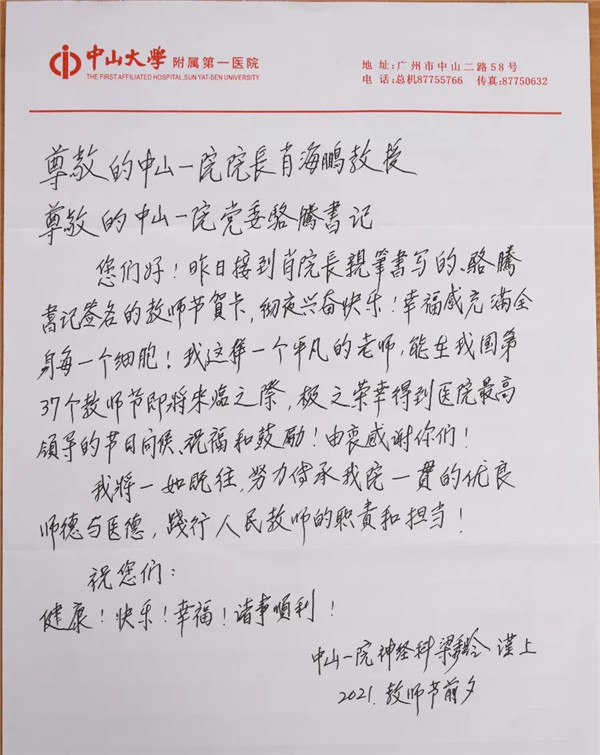 中山大學 附属第一医院
THE FIRST AFFILIATED HOSPITAL, SUN YAT-SEN UNIVERSITY
地 址:广州市中山二路58号
电 话:总机87755766 传真:87750632
尊敬的中山一院院長肖海鹏教授
尊敬的中山一院党委骆腾書记
您们好!昨日接到肖院長親筆書写的、骆腾
書记签名的教师节賀卡,彻夜兴奋快乐!幸福感充满全
身每一个细胞!我这样一个平凡的老师,能在我国第
37个教师节即将来臨之際,极之荣幸得到医院最高
领导的节日问候、祝福和鼓励!由衷感谢你们!
我将一如既往,努力传承我院一貫的优良
师德与医德,踐行人民教师的职責和担当!
祝您们:
健康!快乐!幸福!诸事順利!
中山一院神经科梁 谨上
2021.教师节前夕